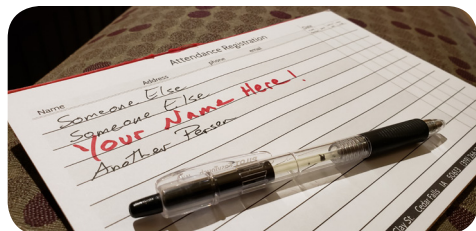 Attendance Registration
Name Address phone email Date
Someone Else
Someone Else
Your Name Here!
Another Person
Clay St. Cedar Falls IA 50613